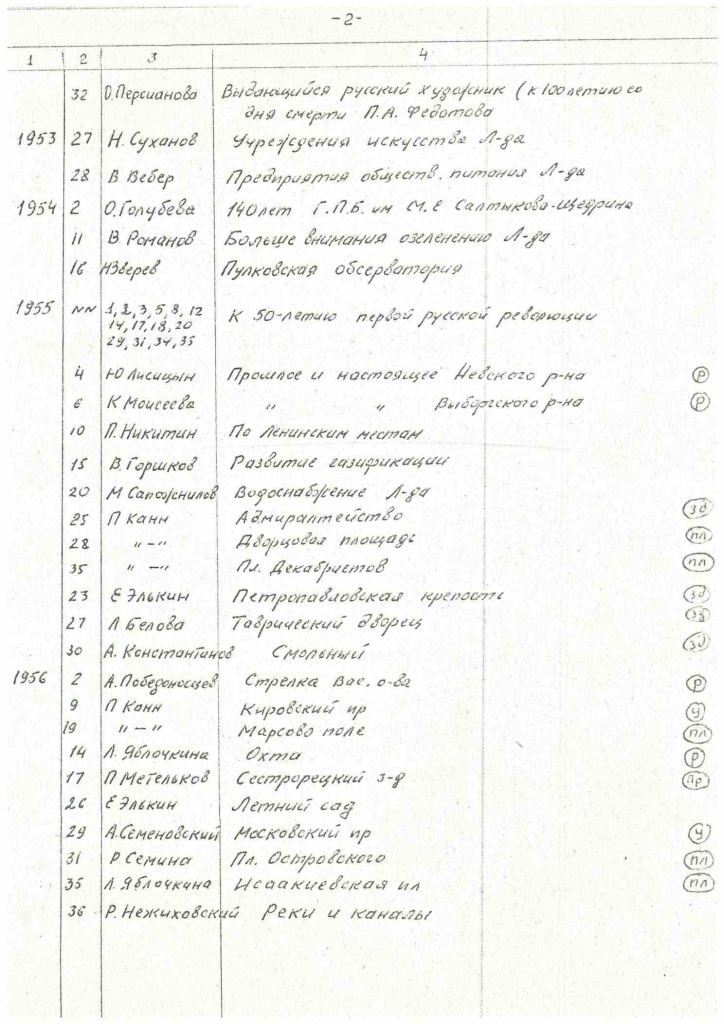 -2-
1 2 3 4
32 О.Персианова Выдающийся русский художник (к 100летию со
дня смерти П.А. Федотова
1953 27 Н. Суханов Учреждения искусства Л-да
28 В Вебер Предприятия обществ. питания Л-да
1954 2 О.Голубева 140лет Г.П.Б. им М.Е Салтыкова-Щедрина
11 В. Романов Больше внимания озеленению Л-да
16 НЗверев Пулковская обсерватория
1955 NN 1, 2, 3, 5, 8, 12 К 50-летию первой русской революции
14, 17, 18, 20
29, 31, 34, 35
4 Ю Лисицын Прошлое и настоящее Невского р-на Р
6 К Моисеева " " Выборгского р-на Р
10 П. Никитин По Ленинским местам
15 В. Горшков Развитие газификации
20 М Сапожнилов Водоснабжение Л-да
25 П Канн Адмиралтейство зд
28 "-" Дворцовая площадь пл
35 "-" Пл. Декабристов пл
23 Е Элькин Петропавловская крепость зд
27 Л Белова Таврический дворец зд
30 А. Константинов Смольный зд
1956 2 А.Победоносцев Стрелка Вас. о-ва Р
9 П Канн Кировский пр У
19 "-" Марсово поле пл
14 Л. Яблочкина Охта Р
17 П Метельков Сестрорецкий з-д Пр
26 Е Элькин Летний сад
29 А.Семеновский Московский пр У
31 Р. Семина Пл. Островского пл
35 Л. Яблочкина Исаакиевская пл пл
36 Р. Нежиховский Реки и каналы